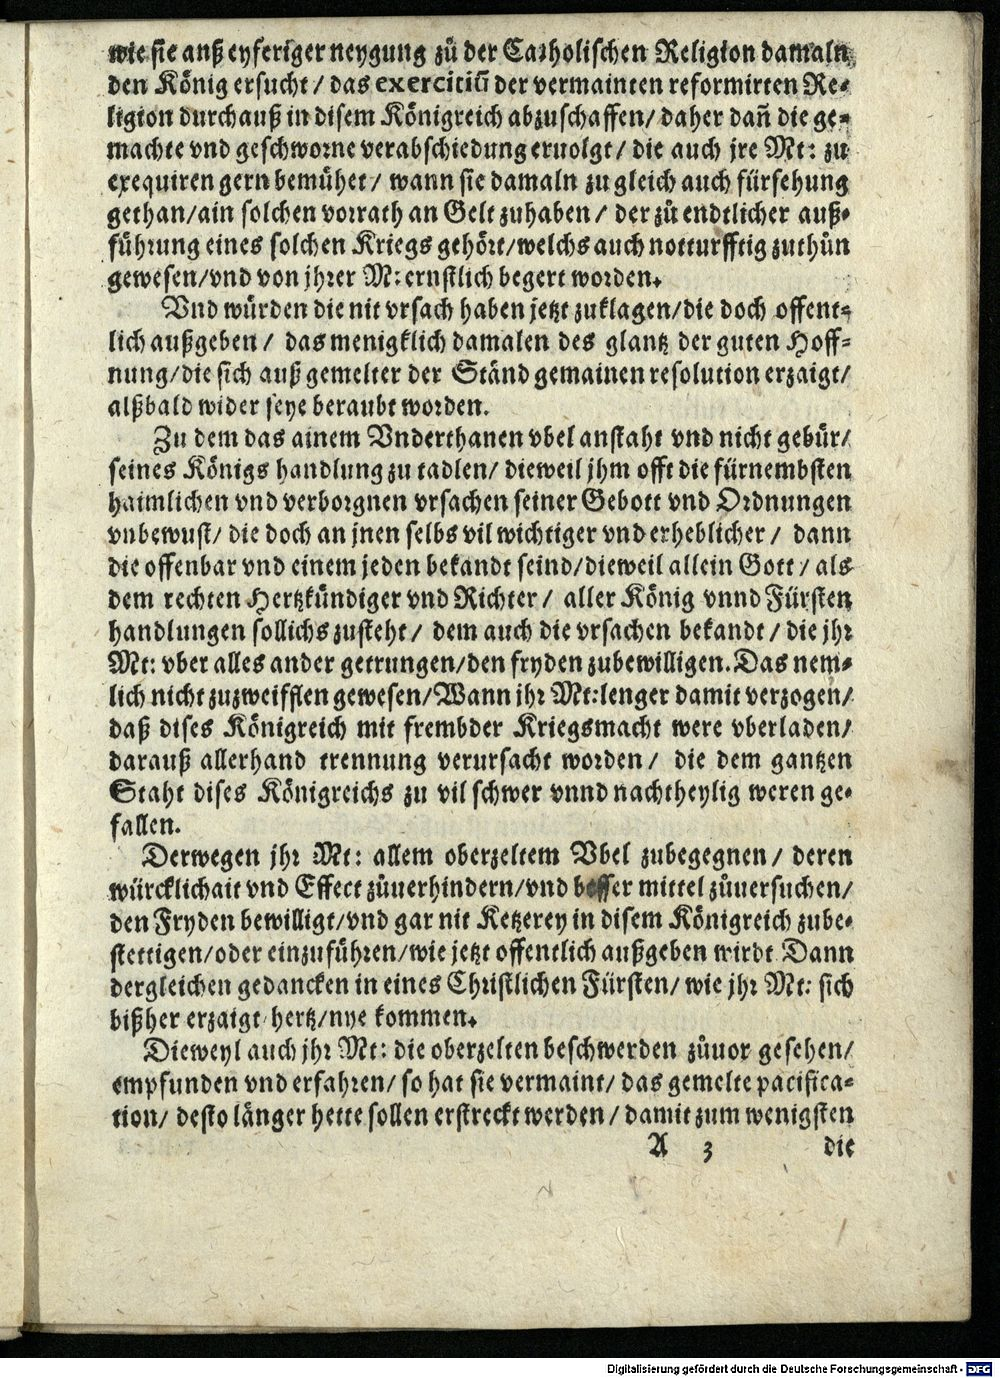 wie sie auß eyferiger neygung zů der Catholischen Religion damaln
den König ersucht / das exercitiũ der vermainten reformirten Re-
ligion durchauß in disem Königreich abzuschaffen / daher dañ die ge-
machte vnd geschworne verabschiedung eruolgt / die auch jre Mt: zu
exequiren gern bemühet / wann sie damaln zu gleich auch fürsehung
gethan / ain solchen vorrath an Gelt zuhaben / der zů endtlicher auß-
führung eines solchen Kriegs gehört / welchs auch notturfftig zuthůn
gewesen / vnd von jhrer M: ernstlich begert worden.
Vnd würden die nit vrsach haben jetzt zuklagen / die doch offent-
lich außgeben / das menigklich damalen des glantz der guten Hoff-
nung / die sich auß gemelter der Ständ gemainen resolution erzaigt /
alßbald wider seye beraubt worden.
Zu dem das ainem Vnderthanen vbel anstaht vnd nicht gebür /
seines Königs handlung zu tadlen / dieweil jhm offt die fürnembsten
haimlichen vnd verborgnen vrsachen seiner Gebott vnd Ordnungen
vnbewust / die doch an jnen selbs vil wichtiger vnd erheblicher / dann
die offenbar vnd einem jeden bekandt seind / dieweil allein Gott / als
dem rechten Hertzkündiger vnd Richter / aller König vnnd Fürsten
handlungen sollichs zusteht / dem auch die vrsachen bekandt / die jhr
Mt: vber alles ander getrungen / den fryden zubewilligen. Das nem-
lich nicht zuzweifflen gewesen / Wann jhr Mt: lenger damit verzogen /
daß dises Königreich mit frembder Kriegsmacht were vberladen /
darauß allerhand trennung verursacht worden / die dem gantzen
Staht dises Königreichs zu vil schwer vnnd nachtheylig weren ge-
fallen.
Derwegen jhr Mt: allem oberzeltem Vbel zubegegnen / deren
würcklichait vnd Effect zůuerhindern / vnd besser mittel zůuersuchen /
den Fryden bewilligt / vnd gar nit Ketzerey in disem Königreich zube-
stettigen / oder einzuführen / wie jetzt offentlich außgeben wirdt Dann
dergleichen gedancken in eines Christlichen Fürsten / wie jhr Mt: sich
bißher erzaigt hertz / nye kommen.
Dieweyl auch jhr Mt: die oberzelten beschwerden zůuor gesehen /
empfunden vnd erfahren / so hat sie vermaint / das gemelte pacifica-
tion / desto länger hette sollen erstreckt werden / damit zum wenigsten
A 3 die
Digitalisierung gefördert durch die Deutsche Forschungsgemeinschaft - DFG